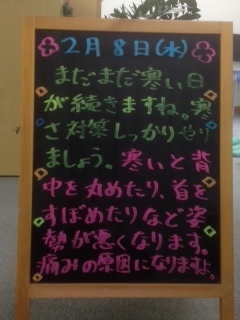 2月8日(水)
まだまだ寒い日
が続きますね。寒
さ対策しっかりやり
ましょう。寒いと背
中を丸めたり、首を
すぼめたりなど姿
勢が悪くなります。
痛みの原因になりますよ。